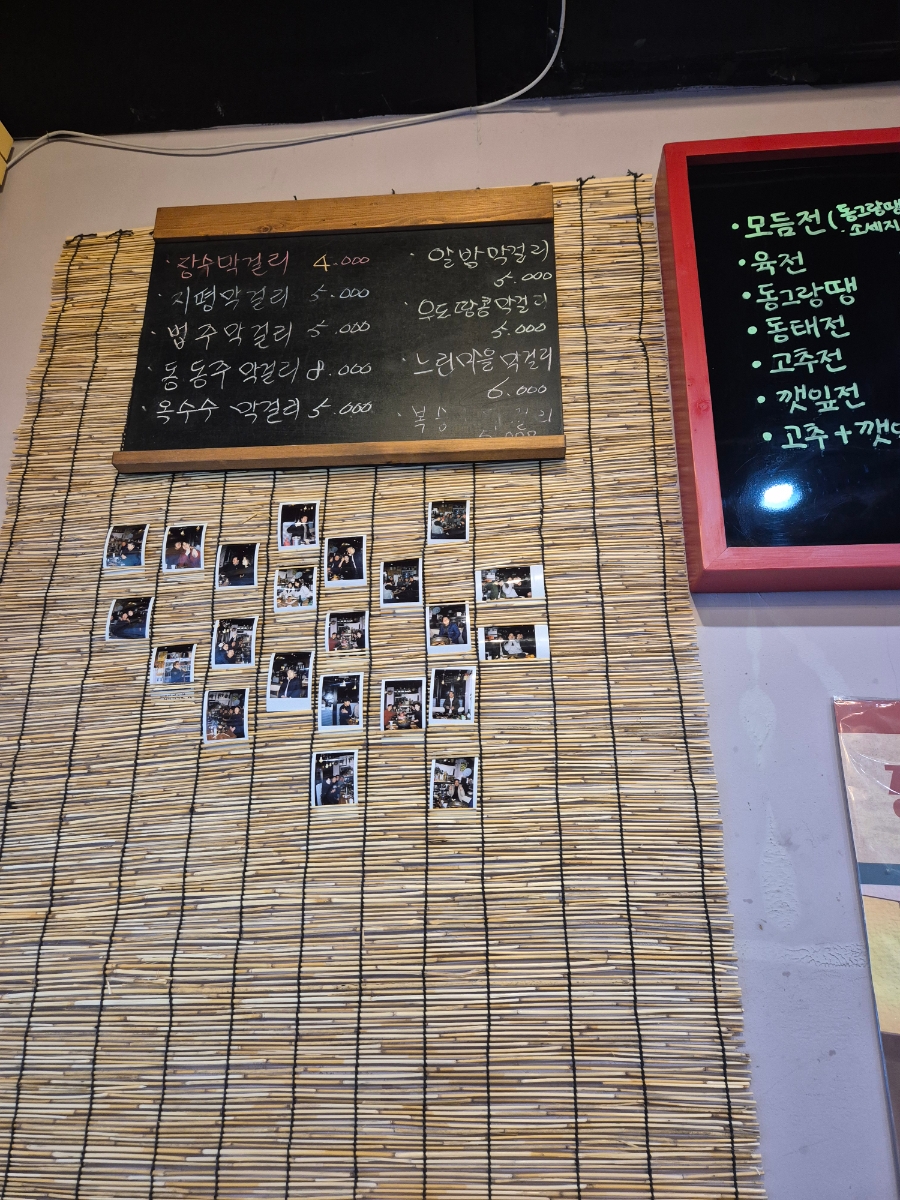 · 장수막걸리 4.000
· 지평막걸리 5.000
· 법주막걸리 5.000
· 동동주 막걸리 8.000
· 옥수수 막걸리 5.000
· 알밤막걸리
5.000
· 우도땅콩막걸리
5.000
· 느린마을 막걸리
6.000
· 모듬전 (동그랑땡
· 소세지
· 육전
· 동그랑땡
· 동태전
· 고추전
· 깻잎전
· 고추 + 깻잎